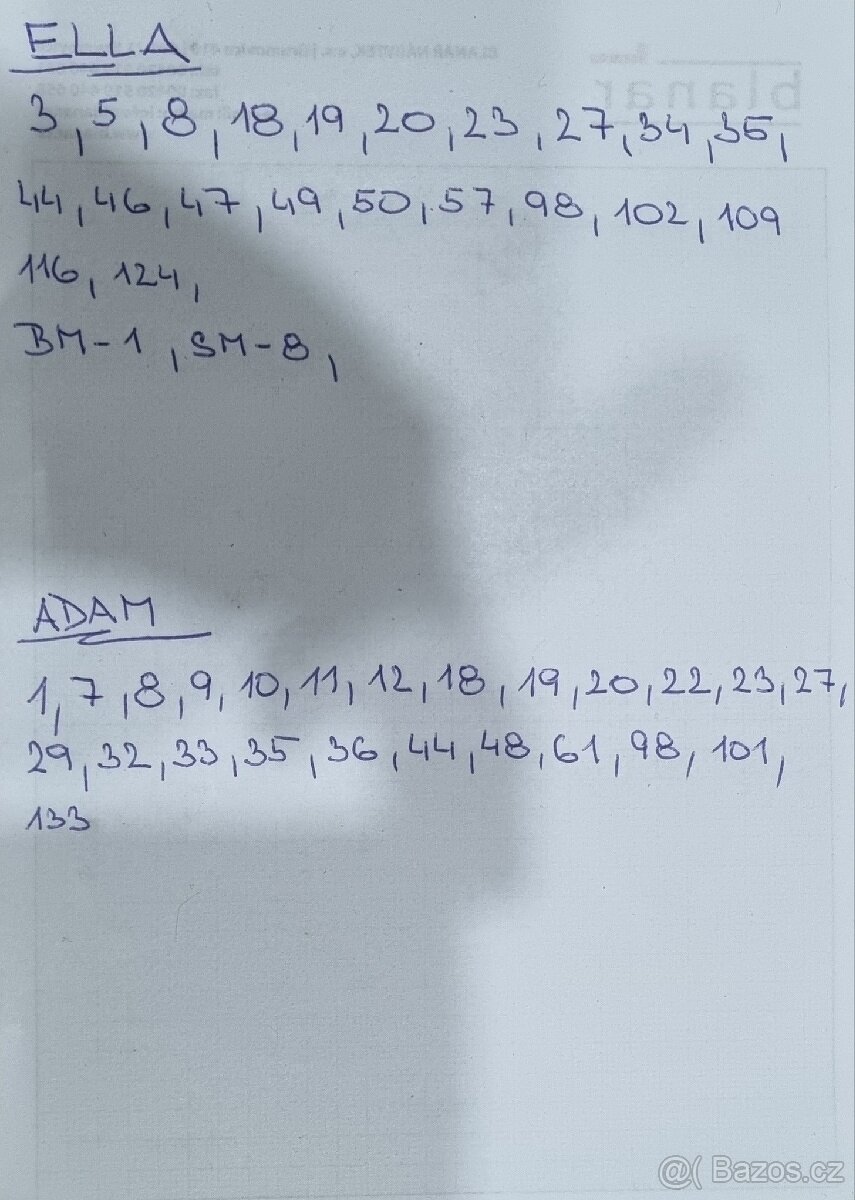 ELLA
3, 5, 8, 18, 19, 20, 23, 27, 34, 35,
44, 46, 47, 49, 50, 57, 98, 102, 109
116, 124,
BM-1, SM-8,
ADAM
1, 7, 8, 9, 10, 11, 12, 18, 19, 20, 22, 23, 27,
29, 32, 33, 35, 36, 44, 48, 61, 98, 101,
133
blanar
@( Bazos.cz